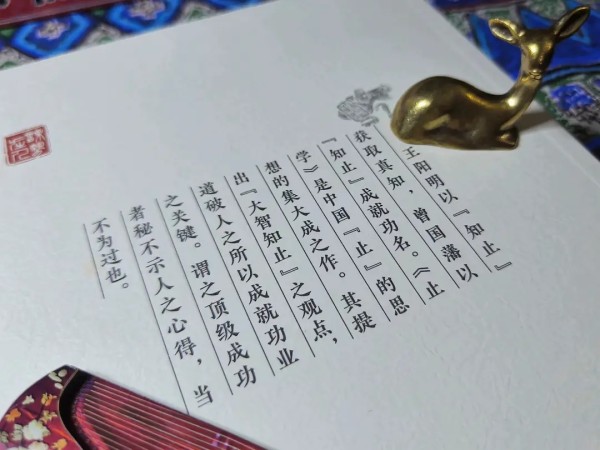 王阳明以『知止』
获取真知，曾国藩以
『知止』成就功名。《止
学》是中国『止』的思
想的集大成之作。其提
出『大智知止』之观点，
道破人之所以成就功业
之关键。谓之顶级成功
者秘不示人之心得，当
不为过也。